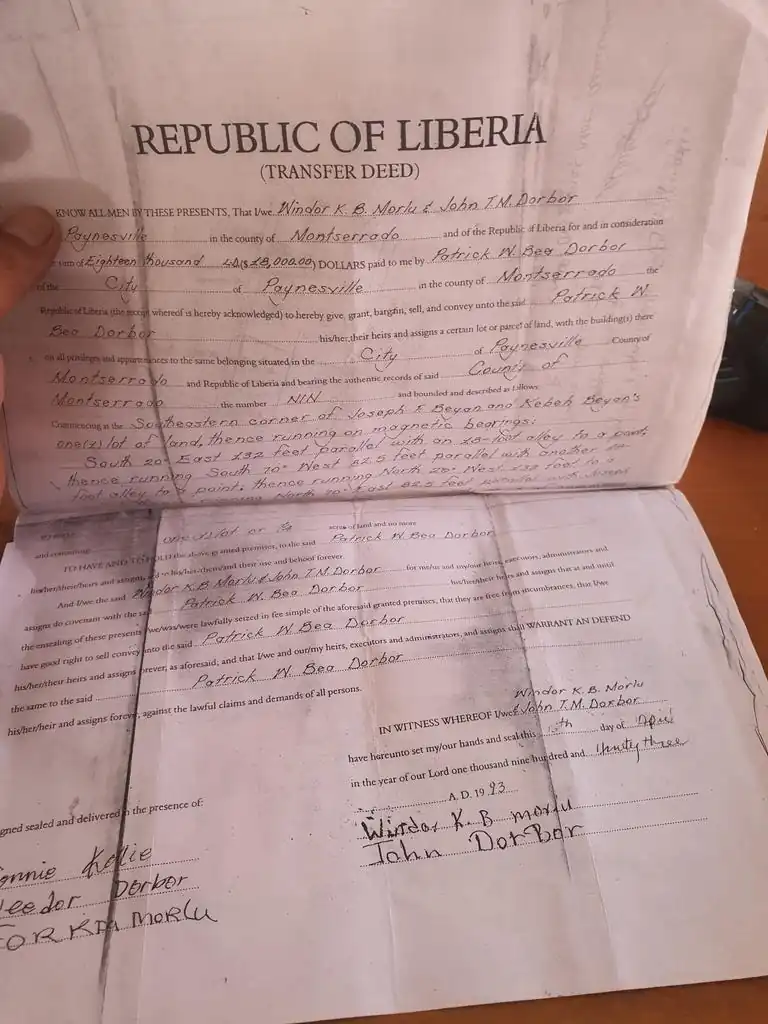 REPUBLIC OF LIBERIA
(TRANSFER DEED)
KNOW ALL MEN BY THESE PRESENTS, That I/we Windor K. B. Morlu & John T.M. Dorbor
Paynesville in the county of Montserrado and of the Republic of Liberia for and in consideration
sum of Eighteen thousand LD($18,000.00) DOLLARS paid to me by Patrick W. Bea Dorbor
of the City of Paynesville in the county of Montserrado the
Republic of Liberia (the receipt whereof is hereby acknowledged) to hereby give, grant, bargain, sell, and convey unto the said Patrick W
Bea Dorbor his/her,their heirs and assigns a certain lot or parcel of land, with the building(s) there
on all privileges and appurtenances to the same belonging situated in the City of Paynesville County of
Montserrado and Republic of Liberia and bearing the authentic records of said County of
Montserrado the number NIN and bounded and described as follows
Commencing at the Southeastern corner of Joseph F Beyan and Kebeh Beyan's
one(1) lot of land, thence running on magnetic bearings:
South 20° East 132 feet parallel with an 18-foot alley to a point,
thence running South 70° West 82.5 feet parallel with another
foot alley to a point; thence running North 20° West 132 feet to a
North 70° East 82.5 feet parallel with Joseph
and containing one(1) lot or ¼ acre of land and no more
TO HAVE AND TO HOLD the above granted premises, to the said Patrick W Bea Dorbor
his/her/their/heirs and assigns to his/her/them/and their use and behoof forever.
And I/we the said Windor K.B Morlu & John T.M. Dorbor for me/us and my/our heirs, executors, administrators and
assigns do covenant with the said Patrick W. Bea Dorbor his/her/their heirs and assigns that at and until
the ensealing of these presents I/we/was/were lawfully seized in fee simple of the aforesaid granted premises, that they are free from incumbrances, that I/we
have good right to sell convey unto the said Patrick W Bea Dorbor
his/her/their heirs and assigns forever, as aforesaid; and that I/we and our/my heirs, executors and administrators, and assigns shall WARRANT AN DEFEND
the same to the said Patrick W. Bea Dorbor
his/her/heir and assigns forever, against the lawful claims and demands of all persons.
IN WITNESS WHEREOF I/we Windor K. B. Morlu
& John T.M. Dorbor
have hereunto set my/our hands and seal this day of April
in the year of our Lord one thousand nine hundred and ninety three
A.D. 19 93
gned sealed and delivered in the presence of:
Windor K. B Morlu
John DorBor
onnie Kollie
Dorbor
MORLU